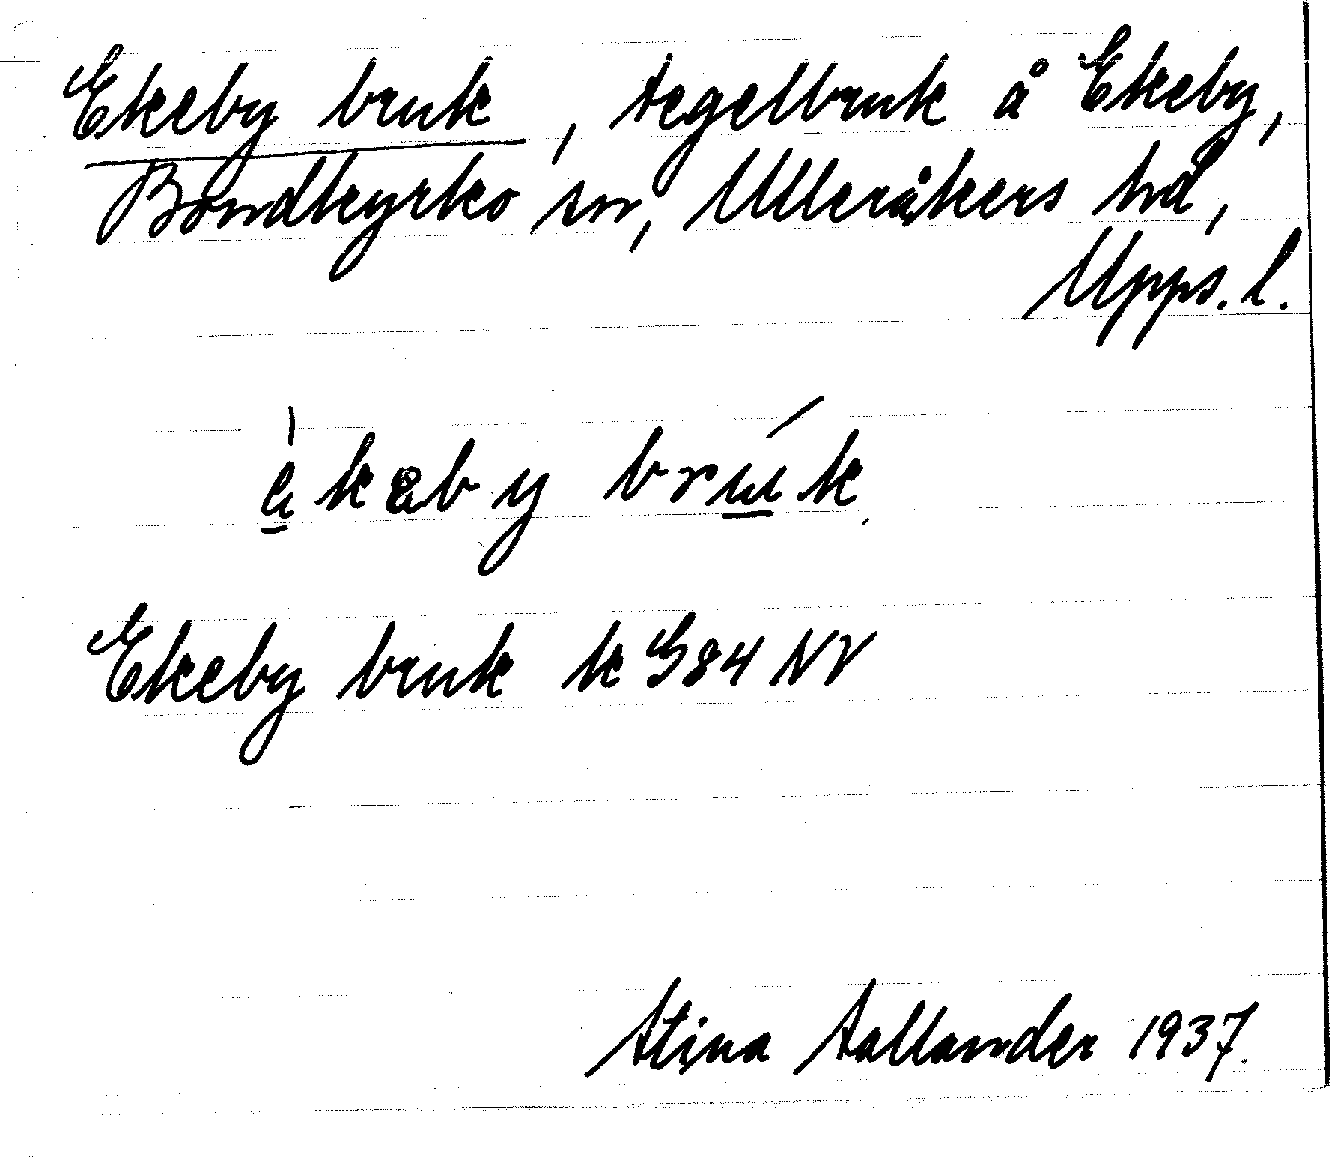 Ekeby bruk, tegelbruk å Ekeby,
Bondkyrko sn, Ulleråkers hd,
Upps. l.
èkəby brúk
Ekeby bruk k G84 NV
Stina Sallander 1937.